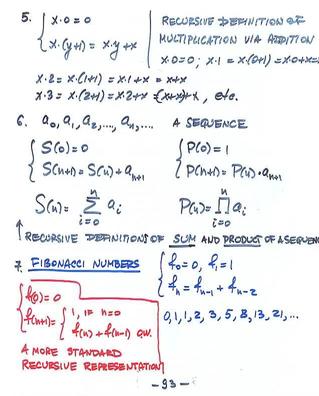 5. { x·0 = 0
x·(y+1) = x·y + x
RECURSIVE DEFINITION OF
MULTIPLICATION VIA ADDITION
x·0 = 0; x·1 = x·(0+1) = x·0+x=
x·2 = x·(1+1) = x·1+x = x+x
x·3 = x·(2+1) = x·2+x = (x+x)+x, etc.
6. a₀, a₁, a₂, ..., aₙ, .... A SEQUENCE
{ S(0) = 0
S(n+1) = S(n) + aₙ₊₁
{ P(0) = 1
P(n+1) = P(n)·aₙ₊₁
S(n) = ∑ⁿᵢ₌₀ aᵢ P(n) = ∏ⁿᵢ₌₀ aᵢ
↑ RECURSIVE DEFINITIONS OF SUM AND PRODUCT OF A SEQUENCE
7. FIBONACCI NUMBERS
{ f₀ = 0, f₁ = 1
fₙ = fₙ₋₁ + fₙ₋₂
{ f(0) = 0
f(n+1) = { 1, IF n=0
f(n) + f(n-1) O.W.
0, 1, 1, 2, 3, 5, 8, 13, 21, ...
A MORE STANDARD
RECURSIVE REPRESENTATION
- 93 -